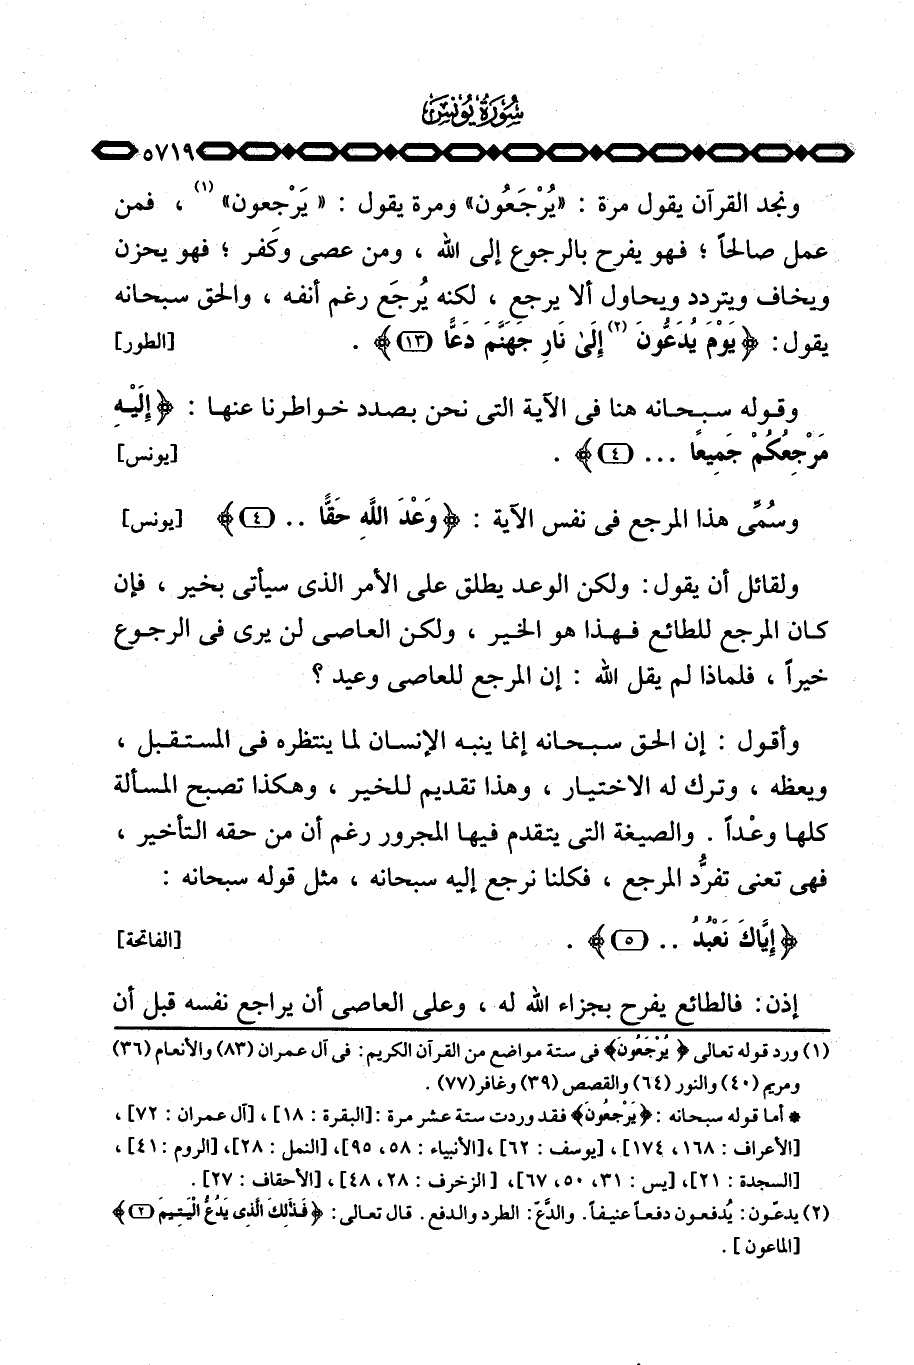 سُورَةُ يُونُسَ
٥٧١٩
ونجد القرآن يقول مرة : «يُرْجَعُون» ومرة يقول : « يَرْجعون» (١) ، فمن
عمل صالحاً ؛ فهو يفرح بالرجوع إلى الله ، ومن عصى وكَفر ؛ فهو يحزن
ويخاف ويتردد ويحاول ألا يرجع ، لكنه يُرجَع رغم أنفه ، والحق سبحانه
يقول: ﴿يَوْمَ يُدَعُّونَ (٢) إِلَىٰ نَارِ جَهَنَّمَ دَعًّا (١٣)﴾ . [الطور]
وقوله سبحانه هنا فى الآية التى نحن بصدد خواطرنا عنها : ﴿إِلَيْهِ
مَرْجِعُكُمْ جَمِيعًا ... (٤)﴾ . [يونس]
وسُمِّى هذا المرجع فى نفس الآية : ﴿وَعْدَ اللَّهِ حَقًّا .. (٤)﴾ [يونس]
ولقائل أن يقول: ولكن الوعد يطلق على الأمر الذى سيأتى بخير ، فإن
كان المرجع للطائع فهذا هو الخير ، ولكن العاصى لن يرى فى الرجوع
خيراً ، فلماذا لم يقل الله : إن المرجع للعاصى وعيد ؟
وأقول : إن الحق سبحانه إنما ينبه الإنسان لما ينتظره فى المستقبل ،
ويعظه ، وترك له الاختيار ، وهذا تقديم للخير ، وهكذا تصبح المسألة
كلها وعْداً . والصيغة التى يتقدم فيها المجرور رغم أن من حقه التأخير ،
فهى تعنى تفرُّد المرجع ، فكلنا نرجع إليه سبحانه ، مثل قوله سبحانه :
﴿إِيَّاكَ نَعْبُدُ .. (٥)﴾ . [الفاتحة]
إذن: فالطائع يفرح بجزاء الله له ، وعلى العاصى أن يراجع نفسه قبل أن
(١) ورد قوله تعالى ﴿ يُرْجَعُونَ﴾ فى ستة مواضع من القرآن الكريم: فى آل عمران (٨٣) والأنعام (٣٦)
ومريم (٤٠) والنور (٦٤) والقصص (٣٩) وغافر(٧٧) .
* أما قوله سبحانه : ﴿يَرْجِعُونَ﴾ فقد وردت ستة عشر مرة :[البقرة : ١٨] ، [آل عمران : ٧٢] ،
[الأعراف : ١٦٨، ١٧٤] ، [يوسف : ٦٢] ،[الأنبياء : ٥٨، ٩٥]، [النمل : ٢٨]، [الروم : ٤١] ،
[السجدة : ٢١]، [يس : ٣١، ٥٠، ٦٧]، [ الزخرف : ٢٨، ٤٨] ، [الأحقاف : ٢٧] .
(٢) يدعّون: يُدفعون دفعاً عنيفاً. والدَّعّ: الطرد والدفع. قال تعالى: ﴿فَذَٰلِكَ الَّذِى يَدُعُّ الْيَتِيمَ (٢)﴾
[الماعون ] .